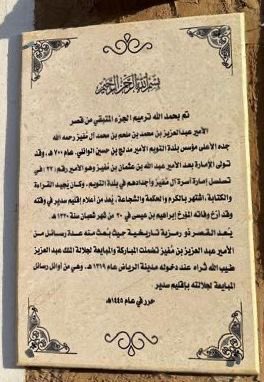 بسم الله الرحمن الرحيم
تم بحمد الله ترميم الجزء المتبقي من قصر
الأمير عبدالعزيز بن محمد بن منعم بن محمد آل مفيز رحمه الله
جده الأعلى مؤسس بلدة التويم الأمير مدلج بن حسين الوائلي. عام ٧٠٠ هـ. وقد
تولى الإمارة بعد الأمير عبد الله بن عثمان بن مفيز وهو الأمير رقم: ٢٣ في
تسلسل إمارة أسرة آل مفيز وأجدادهم في بلدة التويم. وكان يُجيد القراءة
والكتابة. اشتهر بالكرم والحكمة والشجاعة. يُعد من أعلام إقليم سدير في وقته
وقد أرّخ وفاته المؤرخ إبراهيم بن عيسى في ٢٠ من شهر شعبان سنة ١٣٣٠ هـ.
يُعد القصر ذو رمزية تاريخية حيث بعث منه عدة رسائل من
الأمير عبد العزيز بن مُفيز تضمنت المباركة والمبايعة لجلالة الملك عبد العزيز
طيب الله ثراه عند دخوله مدينة الرياض عام ١٣١٩ هـ. وهي من أوائل رسائل
المبايعة لجلالته بإقليم سدير
حرر في عام ١٤٤٥هـ